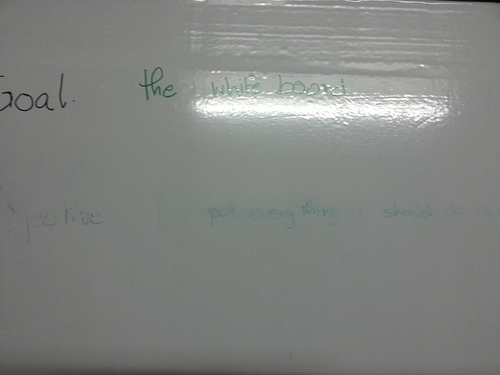 Goal. the white board
Objective. put every thing i should do